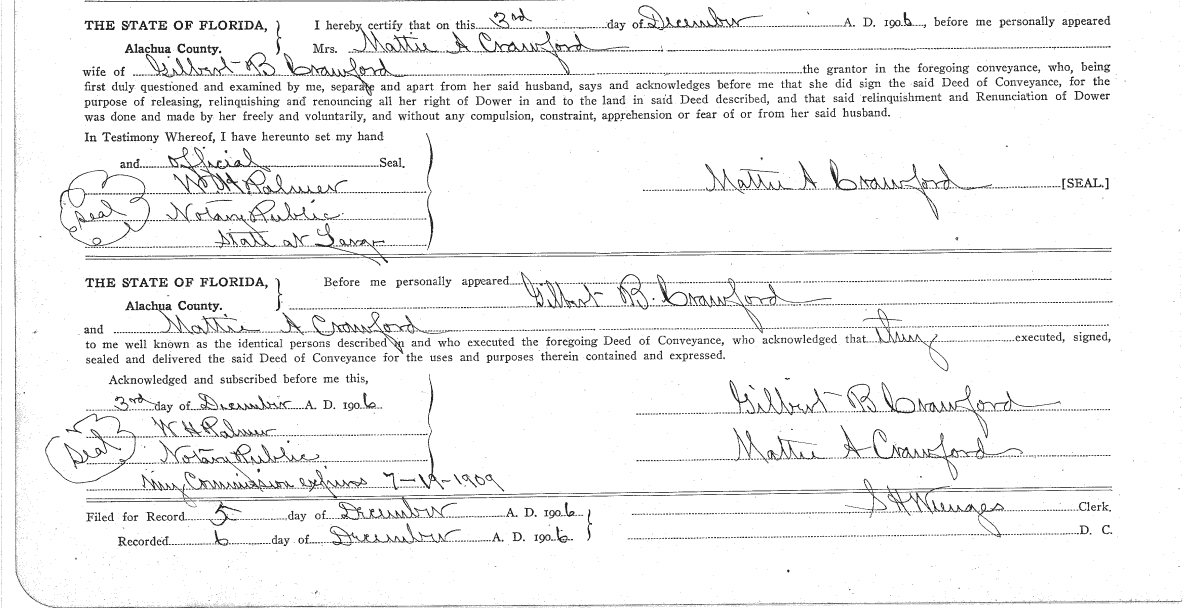 THE STATE OF FLORIDA, } I hereby certify that on this 3rd day of December A. D. 1906, before me personally appeared
Alachua County. Mrs. Mattie A Crawford
wife of Gilbert B Crawford the grantor in the foregoing conveyance, who, being
first duly questioned and examined by me, separate and apart from her said husband, says and acknowledges before me that she did sign the said Deed of Conveyance, for the
purpose of releasing, relinquishing and renouncing all her right of Dower in and to the land in said Deed described, and that said relinquishment and Renunciation of Dower
was done and made by her freely and voluntarily, and without any compulsion, constraint, apprehension or fear of or from her said husband.
In Testimony Whereof, I have hereunto set my hand
and official Seal.
W H Palmer
Mattie A Crawford [SEAL.]
Seal
Notary Public
State at Large
THE STATE OF FLORIDA, } Before me personally appeared Gilbert B. Crawford
Alachua County.
and Mattie A Crawford
to me well known as the identical persons described in and who executed the foregoing Deed of Conveyance, who acknowledged that they executed, signed,
sealed and delivered the said Deed of Conveyance for the uses and purposes therein contained and expressed.
Acknowledged and subscribed before me this,
3rd day of December A. D. 1906
Gilbert B Crawford
W H Palmer
Seal
Notary Public
Mattie A Crawford
My Commission expires 7-19-1909
Filed for Record 5 day of December A. D. 1906
S H Wienges Clerk.
Recorded 6 day of December A. D. 1906. D. C.